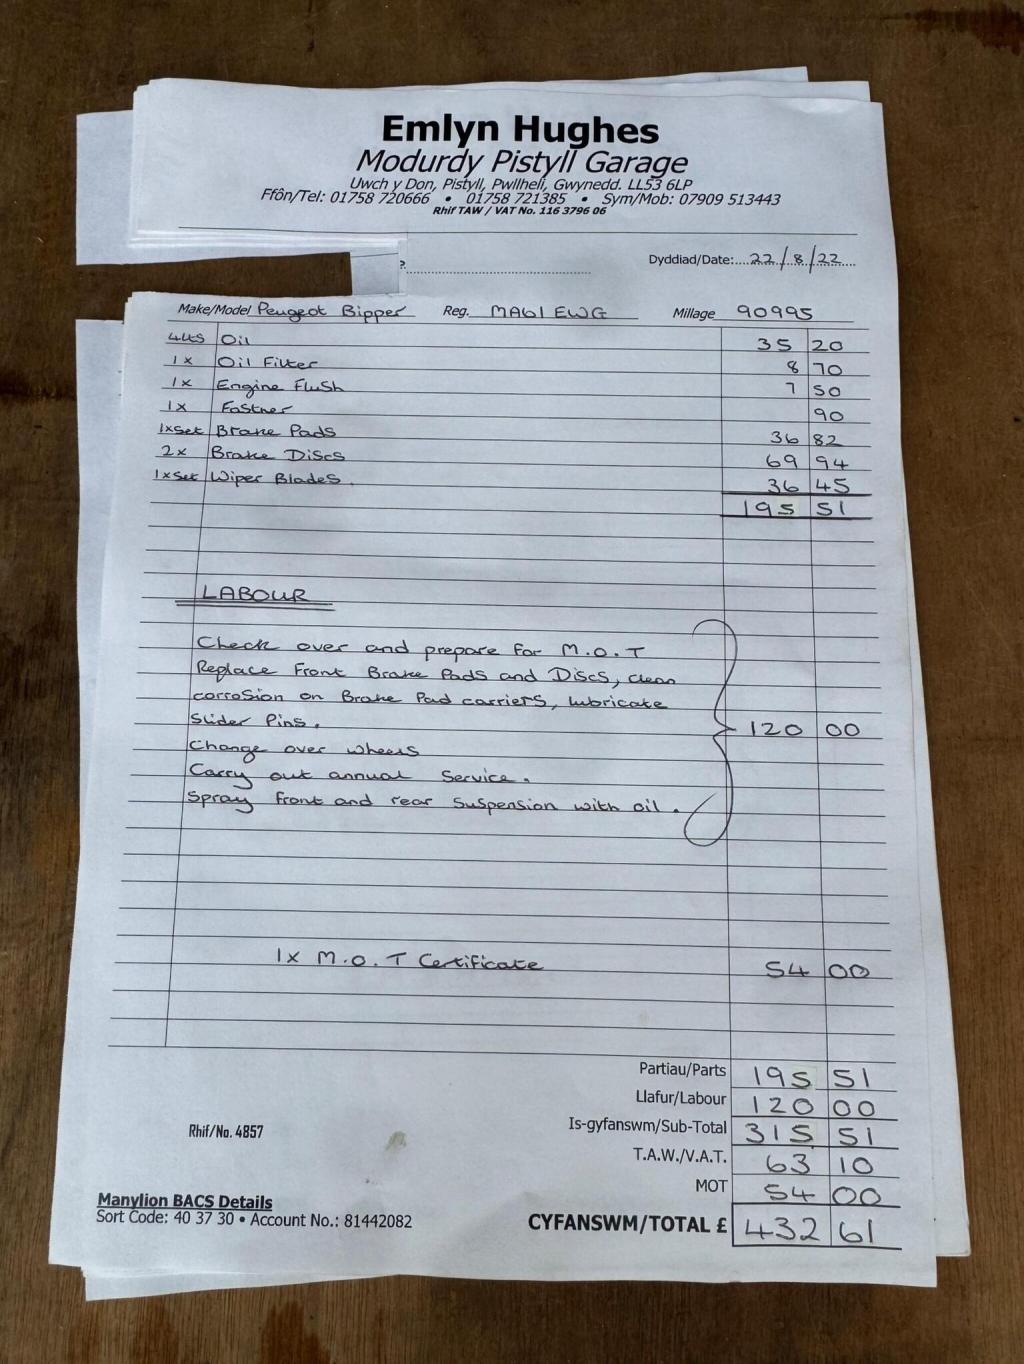 Emlyn Hughes
Modurdy Pistyll Garage
Uwch y Don, Pistyll, Pwllheli, Gwynedd. LL53 6LP
Ffôn/Tel: 01758 720666 • 01758 721385 • Sym/Mob: 07909 513443
Rhif TAW / VAT No. 116 3796 06
Dyddiad/Date:....22/8/22....
Make/Model Peugeot Bipper Reg. MA61 EWG Millage 90995
4Lts Oil 35 20
1x Oil Filter 8 70
1x Engine Flush 7 50
1x Fastner 90
1xSet Brake Pads 36 82
2x Brake Discs 69 94
1xSet Wiper Blades. 36 45
195 51
LABOUR
Check over and prepare for M.O.T
Replace Front Brake Pads and Discs, clean
corrosion on Brake Pad carriers, lubricate
Slider Pins.
120 00
Change over wheels
Carry out annual Service.
Spray front and rear suspension with oil.
1x M.O.T Certificate 54 00
Partiau/Parts 195 51
Llafur/Labour 120 00
Is-gyfanswm/Sub-Total 315 51
T.A.W./V.A.T. 63 10
MOT 54 00
CYFANSWM/TOTAL £ 432 61
Rhif/No. 4857
Manylion BACS Details
Sort Code: 40 37 30 • Account No.: 81442082